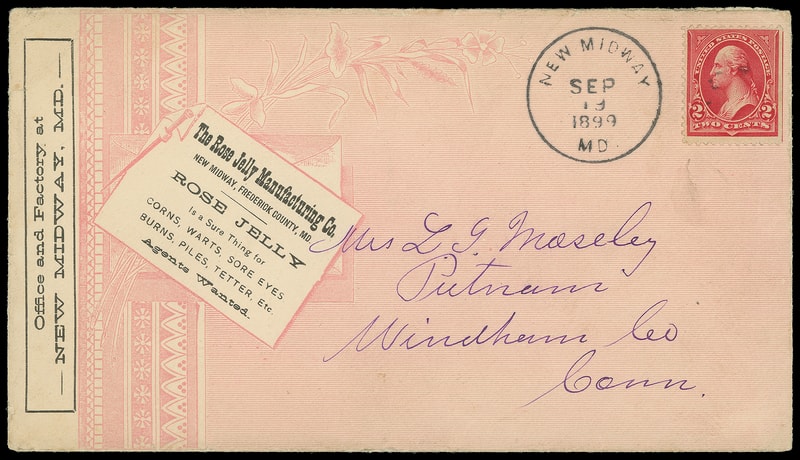 Office and Factory at
— NEW MIDWAY, MD. —
The Rose Jelly Manufacturing Co.
NEW MIDWAY, FREDERICK COUNTY, MD.
ROSE JELLY
Is a Sure Thing for
CORNS, WARTS, SORE EYES
BURNS, PILES, TETTER, Etc.
Agents Wanted.
NEW MIDWAY
SEP
19
1899
MD.
UNITED STATES POSTAGE
2 2
TWO CENTS
Mrs L. G. Moseley
Putnam
Windham Co
Conn.